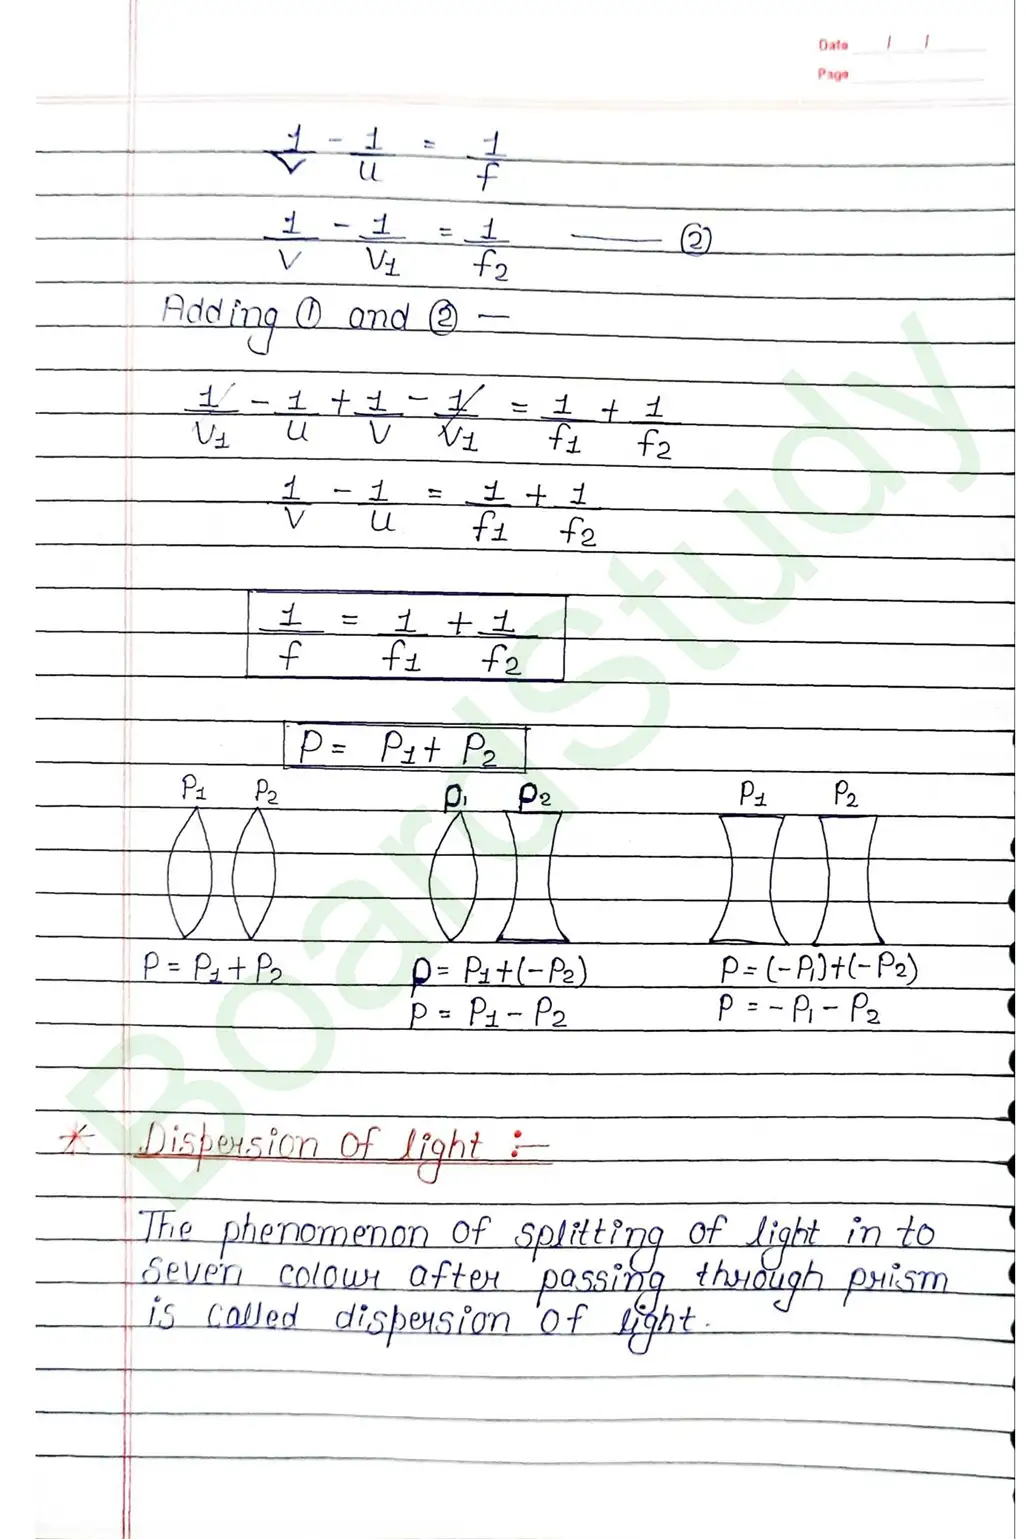 Date / /
Page
1/V - 1/u = 1/f
1/V - 1/V1 = 1/f2 —— ②
Adding ① and ② —
1/V1 - 1/u + 1/V - 1/V1 = 1/f1 + 1/f2
1/V - 1/u = 1/f1 + 1/f2
1/f = 1/f1 + 1/f2
P = P1 + P2
P1 P2 P1 P2 P1 P2
P = P1 + P2 P = P1 + (-P2) P = (-P1) + (-P2)
P = P1 - P2 P = - P1 - P2
* Dispersion of light :-
The phenomenon of splitting of light in to
seven colour after passing through prism
is called dispersion of light.
BoardStudy